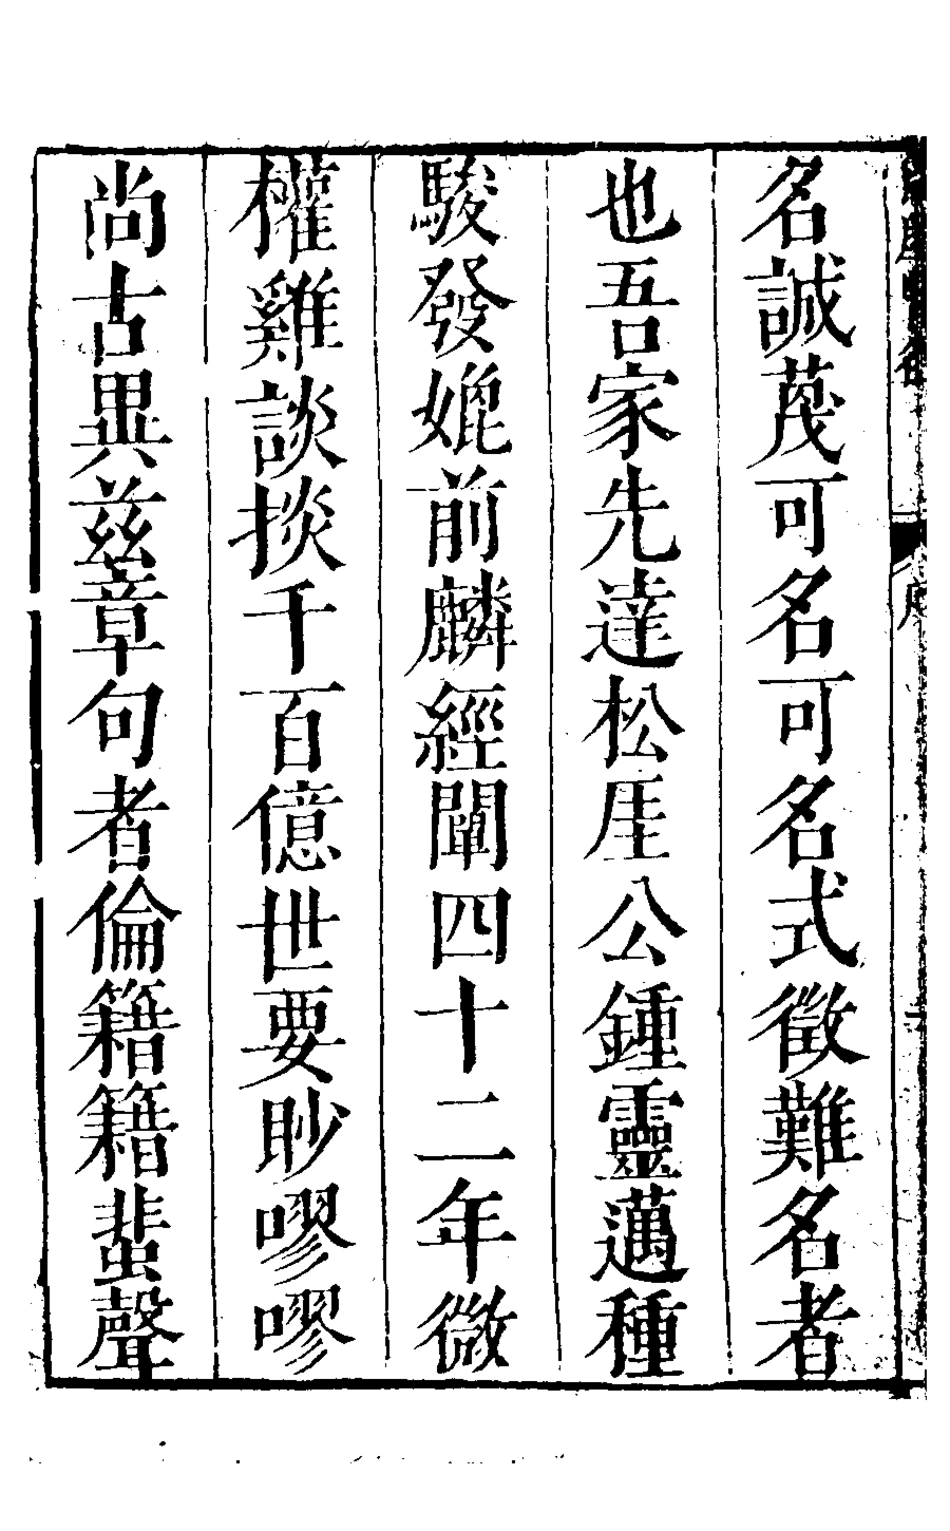 名誠蕆可名可名式徵難名者
也吾家先達松厓公鍾靈邁種
駿發媲前麟經闡四十二年微
權雞談掞千百億世要眇嘐嘐
尚古異茲章句者倫籍籍蜚聲
序